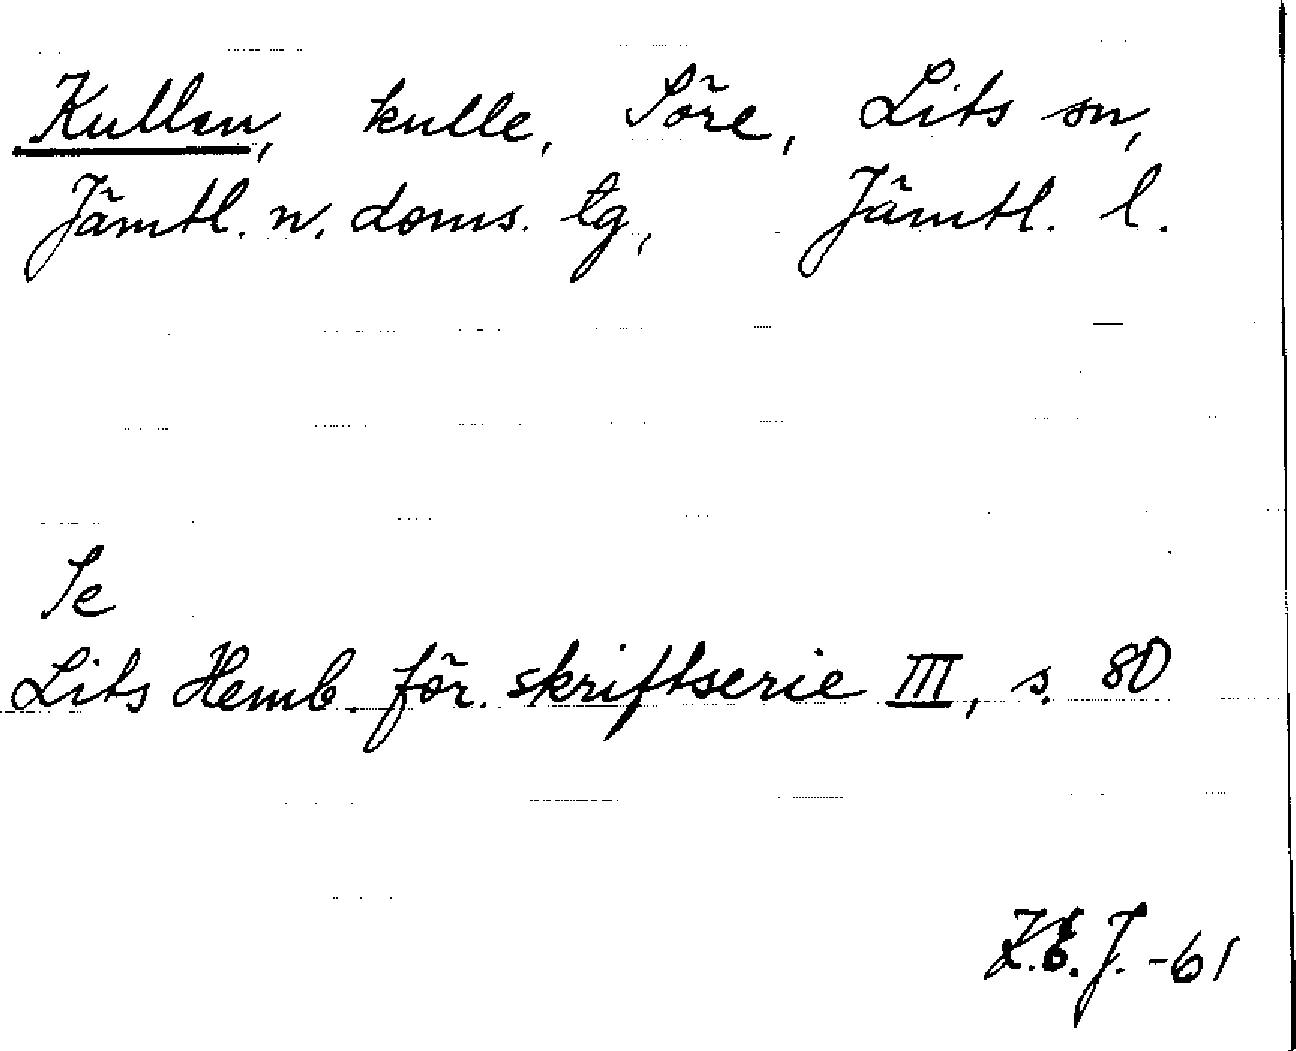 Kullen, kulle, Söre, Lits sn,
Jämtl. n. doms. tg, Jämtl. l.
Se
Lits Hemb. för. skriftserie III, s. 80
K.E.J. -61